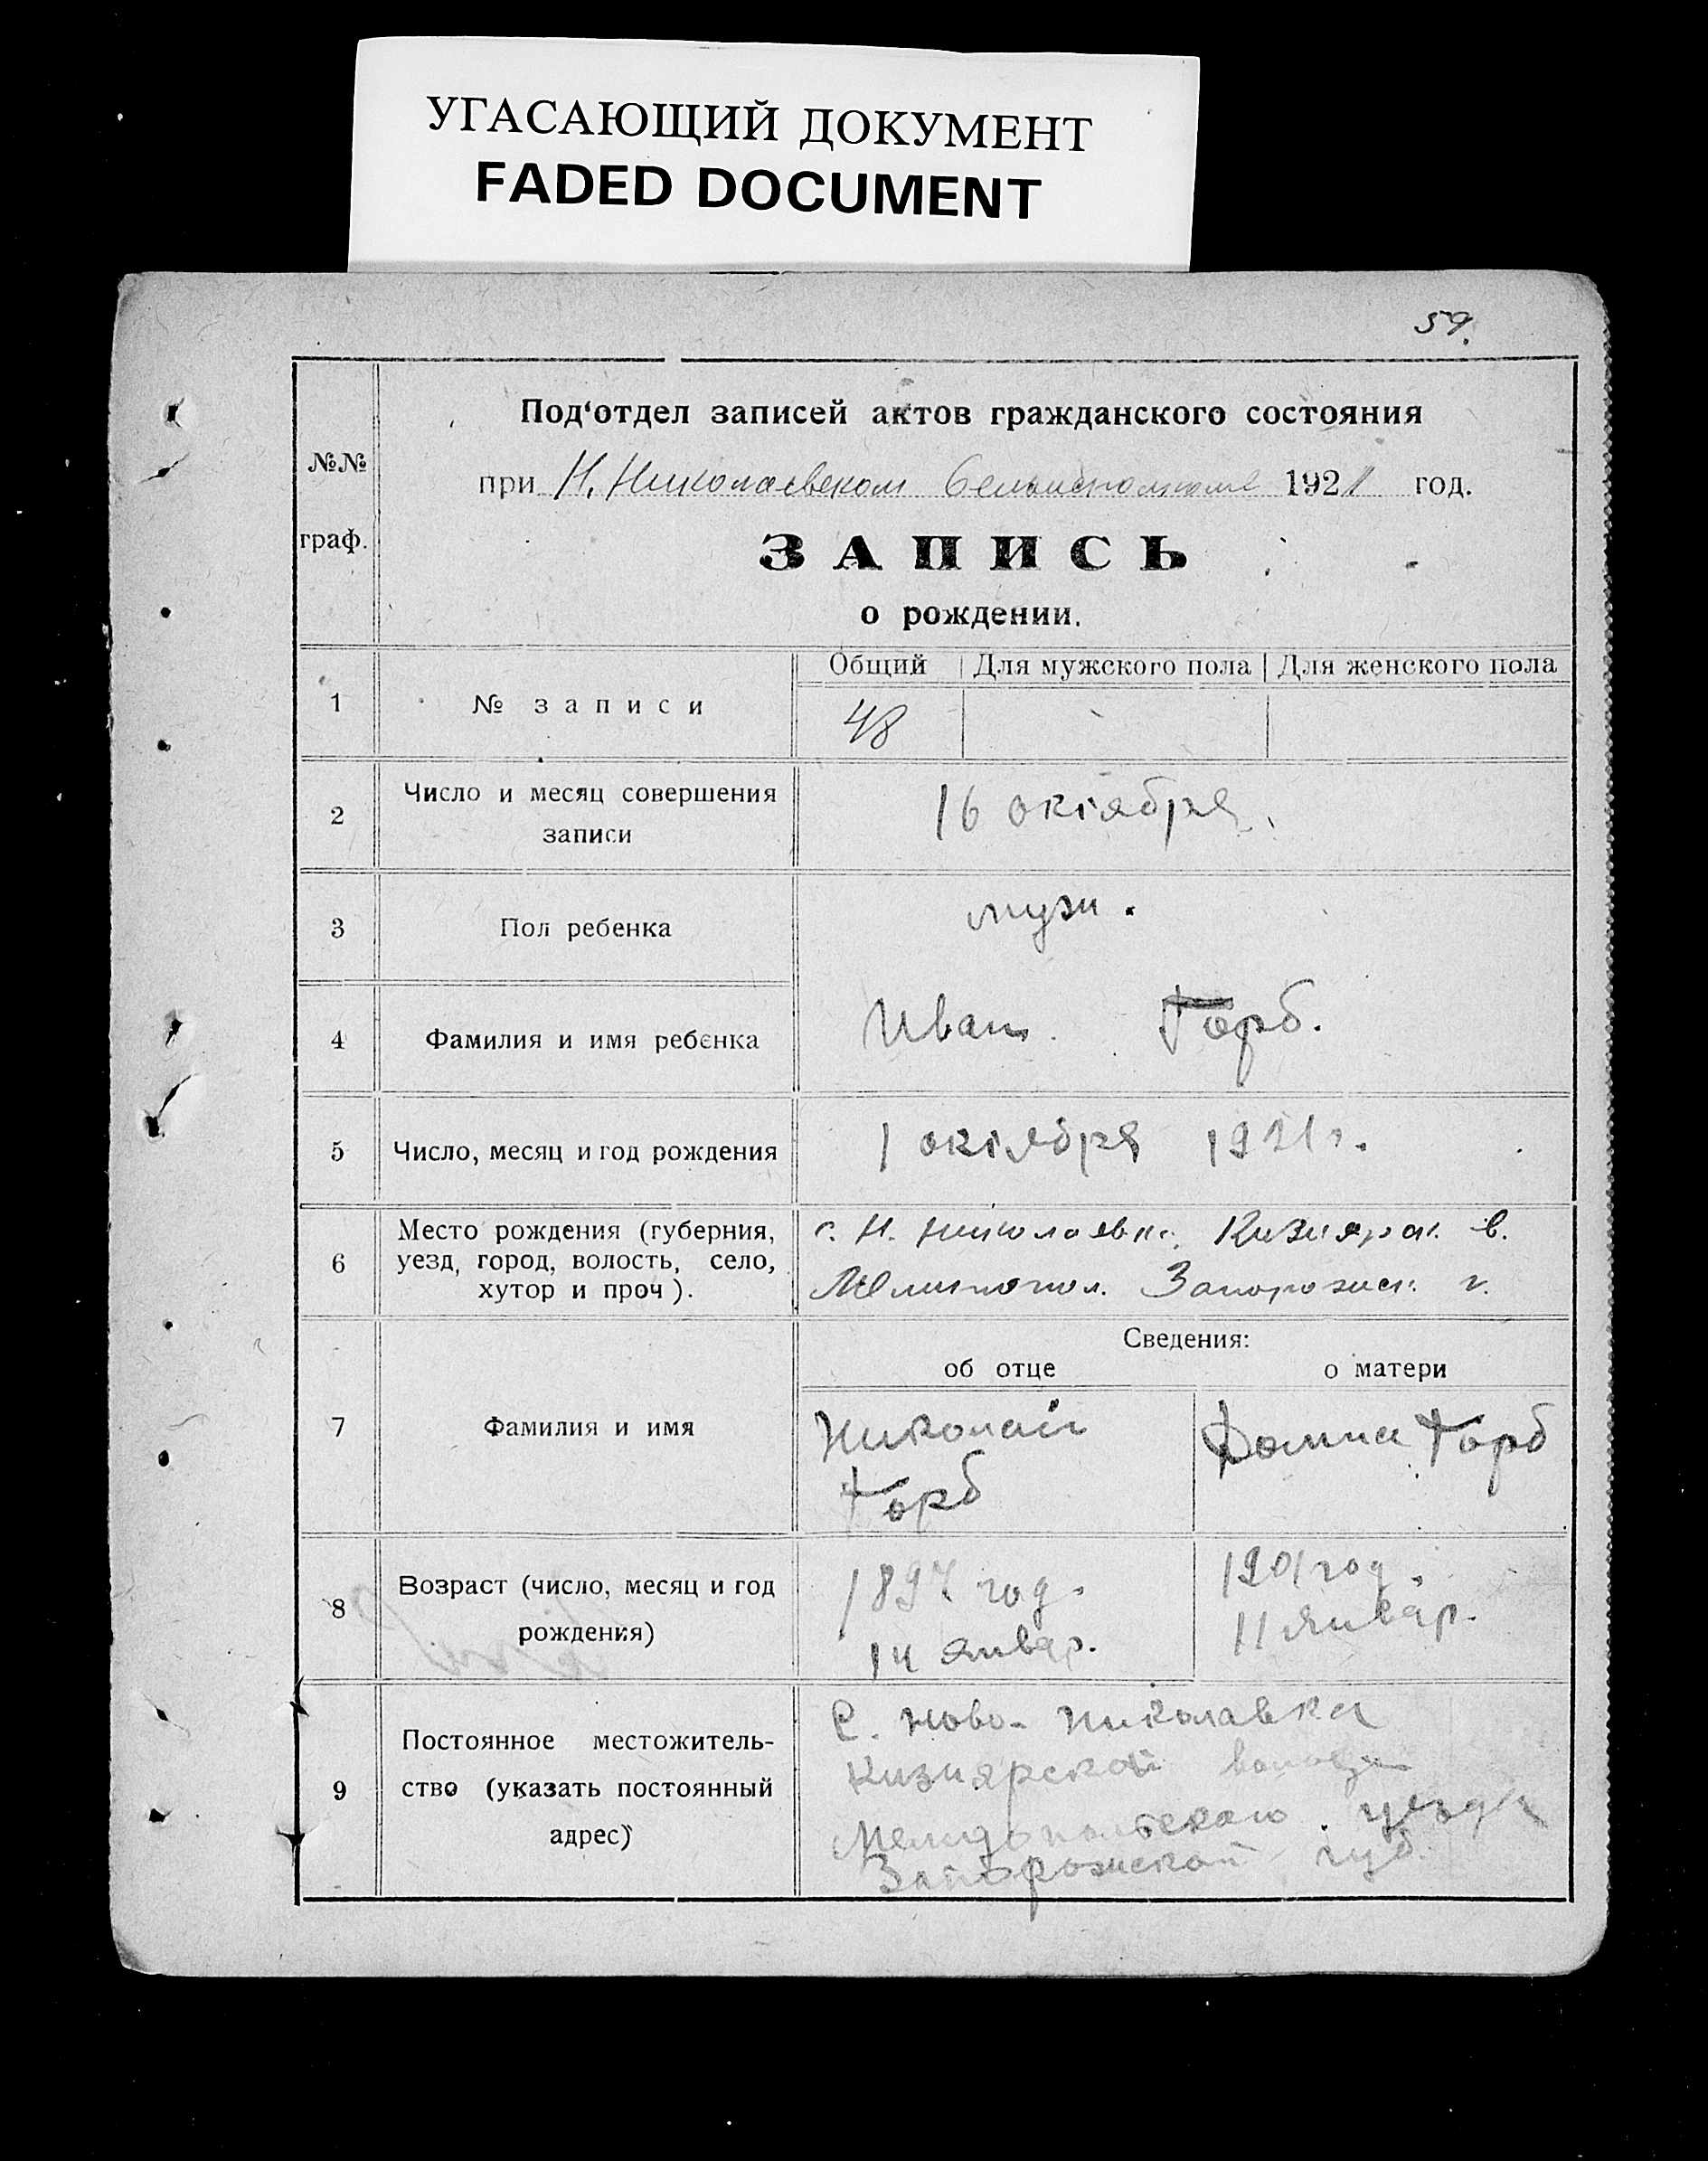 УГАСАЮЩИЙ ДОКУМЕНТ
FADED DOCUMENT
59.
№№
граф.
Под‘отдел записей актов гражданского состояния
при Н. Николаевском 1921 год.
ЗАПИСЬ
о рождении.
Общий Для мужского пола Для женского пола
1 № записи 48
2 Число и месяц совершения
записи
16 октября
3 Пол ребенка муж.
4 Фамилия и имя ребенка Иван Горб.
5 Число, месяц и год рождения 1 октября 1921 г.
6 Место рождения (губерния,
уезд, город, волость, село,
хутор и проч).
с. Н. Николаевка Кизиярск. в.
Мелитопол. Запорожск. г.
Сведения:
об отце о матери
7 Фамилия и имя
Николай
Горб
Домна Горб
8 Возраст (число, месяц и год
рождения)
1897 год.
14 январ.
1901 год.
11 январ.
9 Постоянное местожитель-
ство (указать постоянный
адрес)
С. Ново-Николавка
Кизиярской
уезда
Запорожской губ.